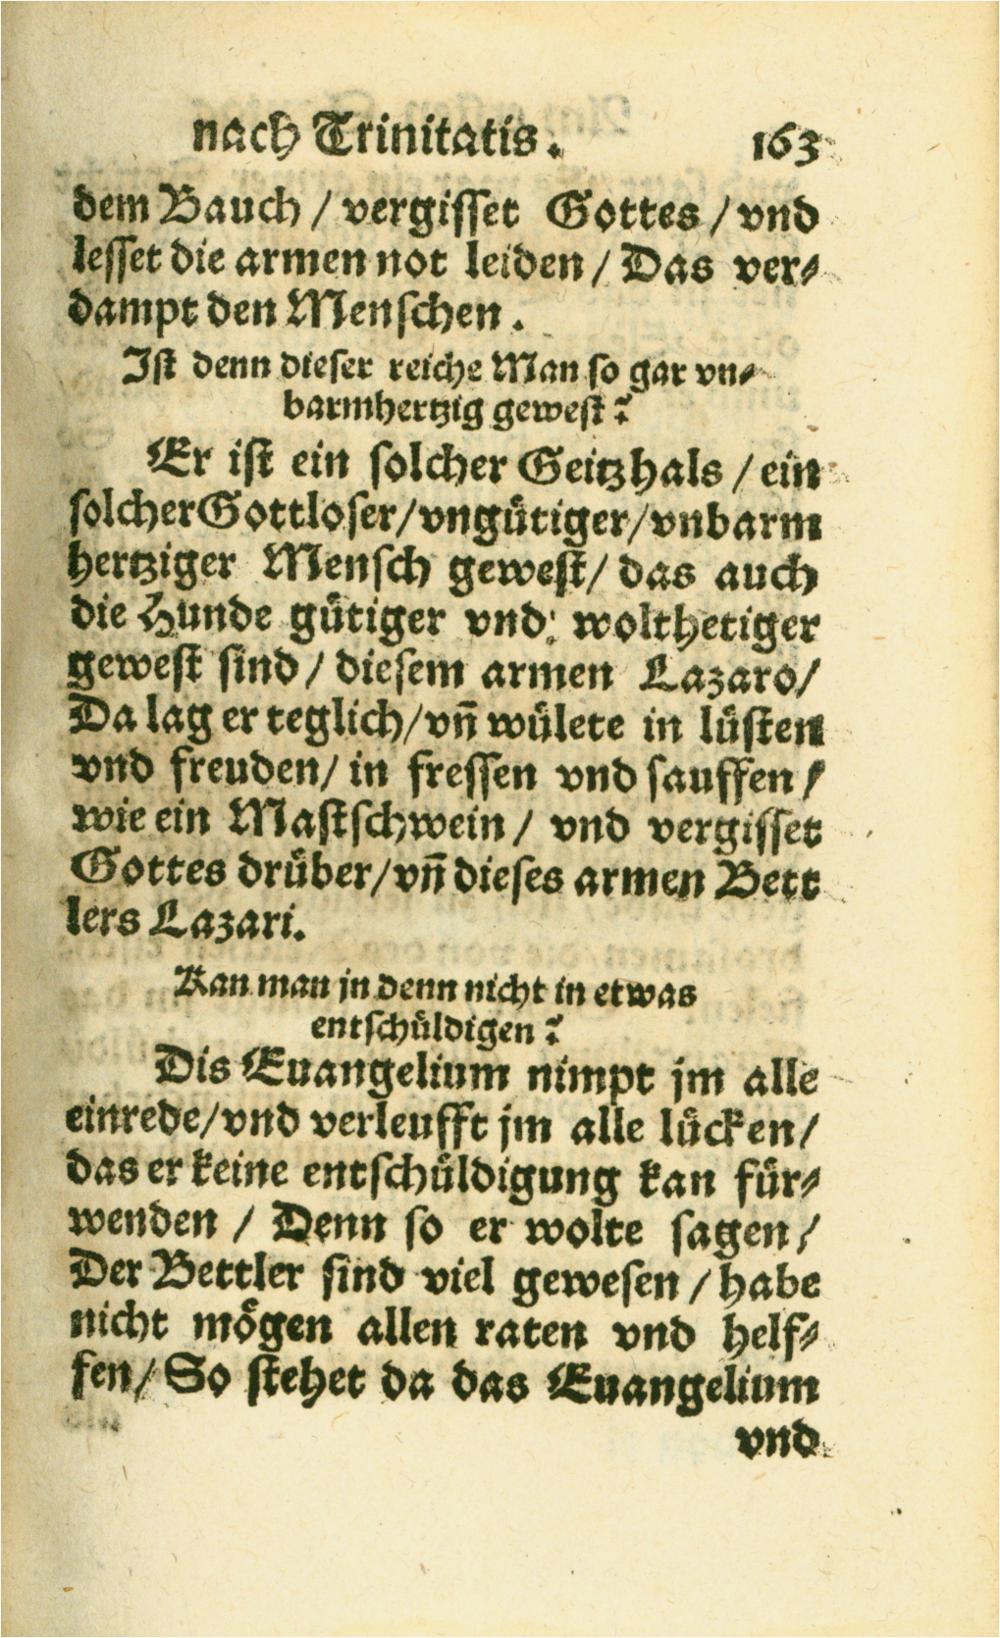 nach Trinitatis. 163
dem Bauch / vergisset Gottes / vnd
lesset die armen not leiden / Das ver⸗
dampt den Menschen.
Ist denn dieser reiche Man so gar vn⸗
barmhertzig gewest?
Er ist ein solcher Geitzhals / ein
solcher Gottloser / vngütiger / vnbarm
hertziger Mensch gewest / das auch
die Hunde gütiger vnd: wolthetiger
gewest sind / diesem armen Lazaro /
Da lag er teglich / vñ wülete in lüsten
vnd freuden / in fressen vnd sauffen /
wie ein Mastschwein / vnd vergisset
Gottes drüber / vñ dieses armen Bett
lers Lazari.
Kan man jn denn nicht in etwas
entschüldigen?
Dis Euangelium nimpt jm alle
einrede / vnd verleufft jm alle lücken /
das er keine entschüldigung kan für⸗
wenden / Denn so er wolte sagen /
Der Bettler sind viel gewesen / habe
nicht mögen allen raten vnd helf⸗
fen / So stehet da das Euangelium
vnd